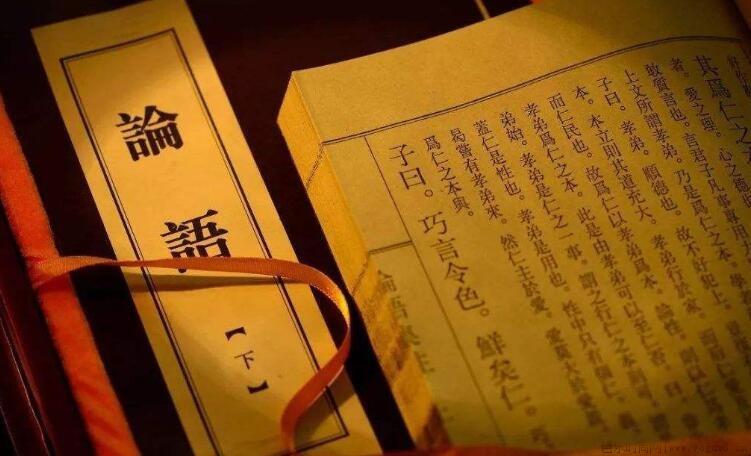 論語
【下】
其爲仁之
者。愛之理。心之德
敢質言也。言君子凡事專用
上文所謂孝弟。乃是爲仁之本。學
子曰。孝弟。順德也。故不好犯上。
本。本立則其道充大。孝弟行於家。而
而仁民也。故爲仁以孝弟爲本。論性。則以仁爲
爲仁之本。此是由孝弟可以至仁否。曰。
弟始。孝弟是仁之一事。謂之行仁之本則可。
蓋仁是性也。孝弟是用也。性中只有箇仁
曷嘗有孝弟來。然仁主於愛。愛莫大於愛親。
爲仁之本與。
子曰。巧言令色。鮮矣仁。巧
論語集註